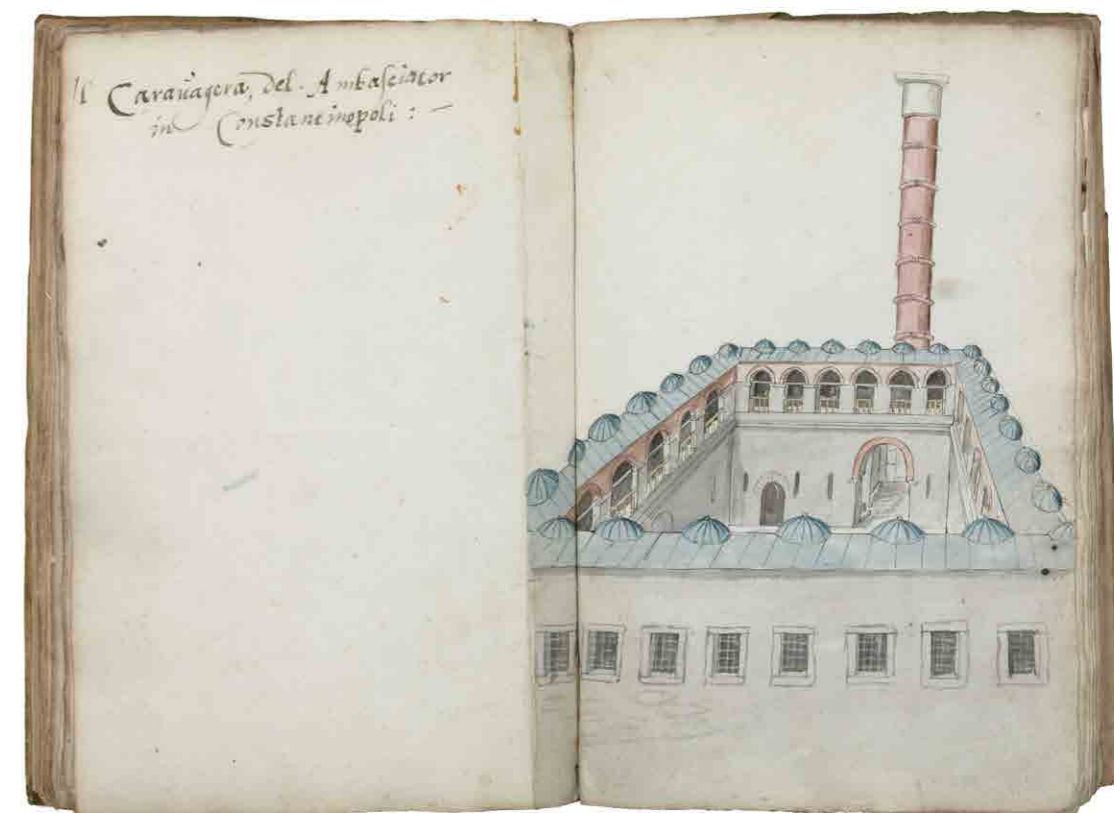 Il Carauāgera, Del. Ambasciator
in Constantinopoli :